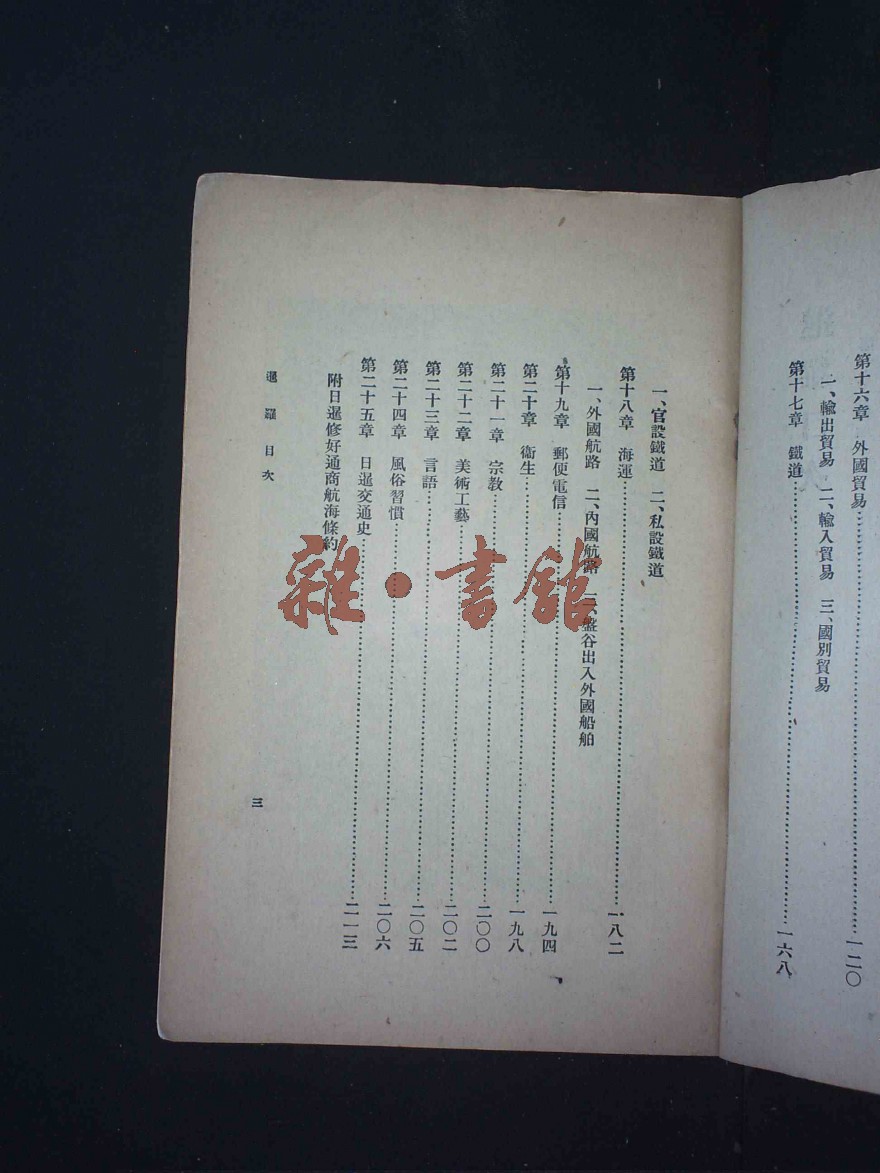 第十六章　外國貿易……一二〇
一、輸出貿易　二、輸入貿易　三、國別貿易
第十七章　鐵道……一六八
一、官設鐵道　二、私設鐵道
第十八章　海運……一八二
一、外國航路　二、內國航路　三、盤谷出入外國船舶
第十九章　郵便電信……一九四
第二十章　衛生……一九八
第二十一章　宗教……二〇〇
第二十二章　美術工藝……二〇二
第二十三章　言語……二〇五
第二十四章　風俗習慣……二〇六
第二十五章　日暹交通史……二一三
附日暹修好通商航海條約
暹羅目次
三
雜·書館